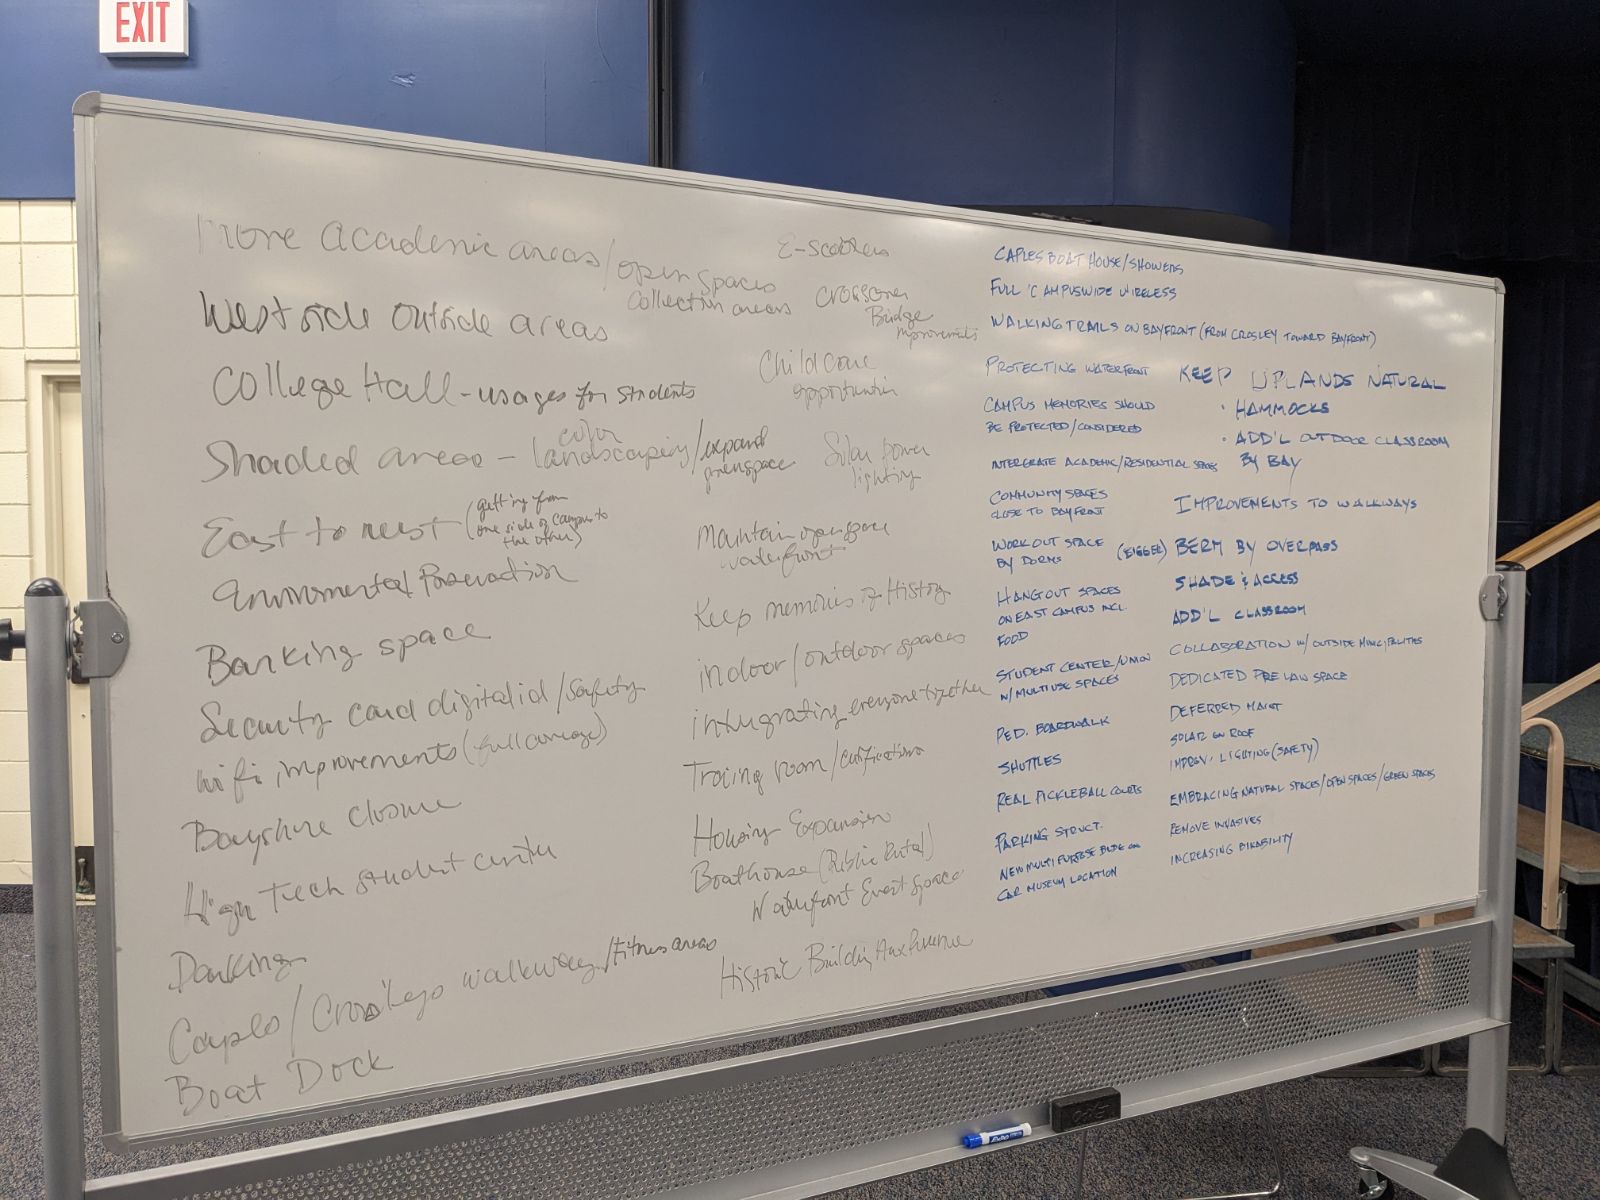 EXIT
More Academic areas/open spaces
collection areas
West side outside areas
College Hall - usages for students
Shaded areas - color landscaping/expand
greenspace
East to west (getting from
one side of campus to
the other)
Environmental Preservation
Banking space
Security card digital id/Safety
wifi improvements (full coverage)
Bayshore closure
High Tech student center
Caples/ walkway/fitness areas
Boat Dock
E-scooters
crossover
Bridge
improvements
Childcare
opportunities
Solar power
lighting
Maintain open space
waterfront
Keep memories of History
indoor/outdoor spaces
integrating everyone together
room/certifications
Housing Expansion
Boathouse (Public Rental)
Waterfront Event space
Historic Building Aux Revenue
CAPLES BOAT HOUSE/SHOWERS
FULL CAMPUSWIDE WIRELESS
WALKING TRAILS ON BAYFRONT (FROM CROSLEY TOWARD BAYFRONT)
PROTECTING WATERFRONT
CAMPUS MEMORIES SHOULD
BE PROTECTED/CONSIDERED
INTERGRATE ACADEMIC/RESIDENTIAL SPACES
COMMUNITY SPACES
CLOSE TO BAYFRONT
WORKOUT SPACE
BY DORMS (BIGGER)
HANGOUT SPACES
ON EAST CAMPUS INCL.
FOOD
STUDENT CENTER/UNION
W/MULTIUSE SPACES
PED. BOARDWALK
SHUTTLES
REAL PICKLEBALL COURTS
PARKING STRUCT.
NEW MULTI PURPOSE BLDG ON
CAR MUSEUM LOCATION
KEEP UPLANDS NATURAL
• HAMMOCKS
• ADD'L OUTDOOR CLASSROOM
BY BAY
IMPROVEMENTS TO WALKWAYS
BERM BY OVERPASS
SHADE & ACCESS
ADD'L CLASSROOM
COLLABORATION W/ OUTSIDE MUNICIPALITIES
DEDICATED PRE LAW SPACE
DEFERRED MAINT
SOLAR ON ROOF
IMPROV. LIGHTING (SAFETY)
EMBRACING NATURAL SPACES/OPEN SPACES/GREEN SPACES
REMOVE INVASIVES
INCREASING BIKABILITY
EXPO